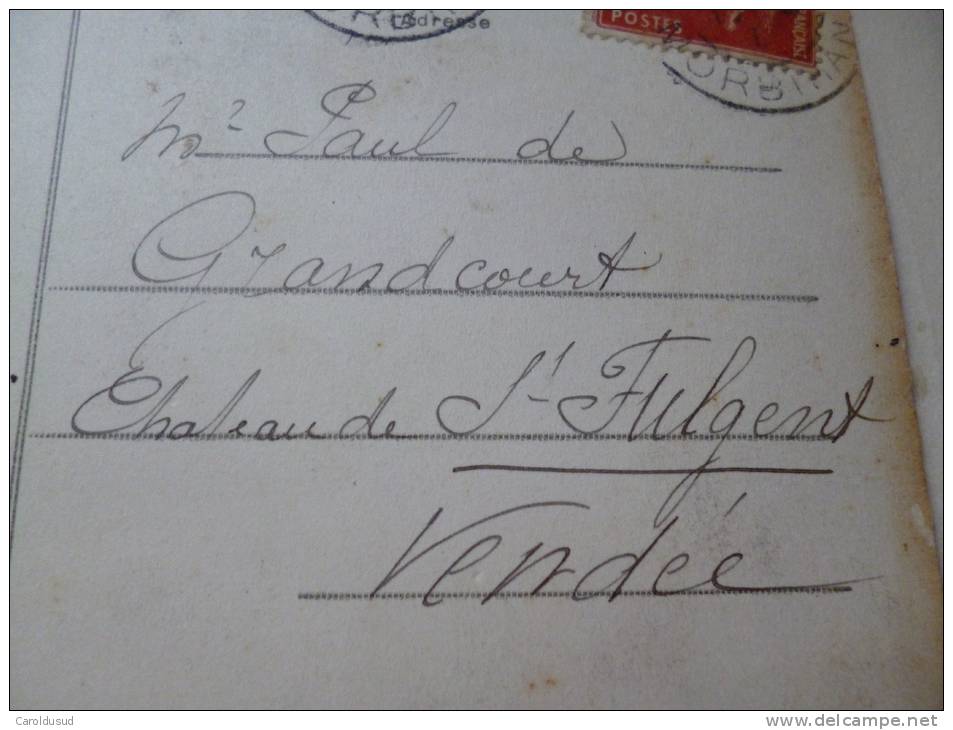 Adresse
POSTES
FRANÇAISE
ORBIHAN
Mr Paul de
Grandcourt
Chateau de St Fulgent
Vendée
Caroldusud
www.delcampe.net